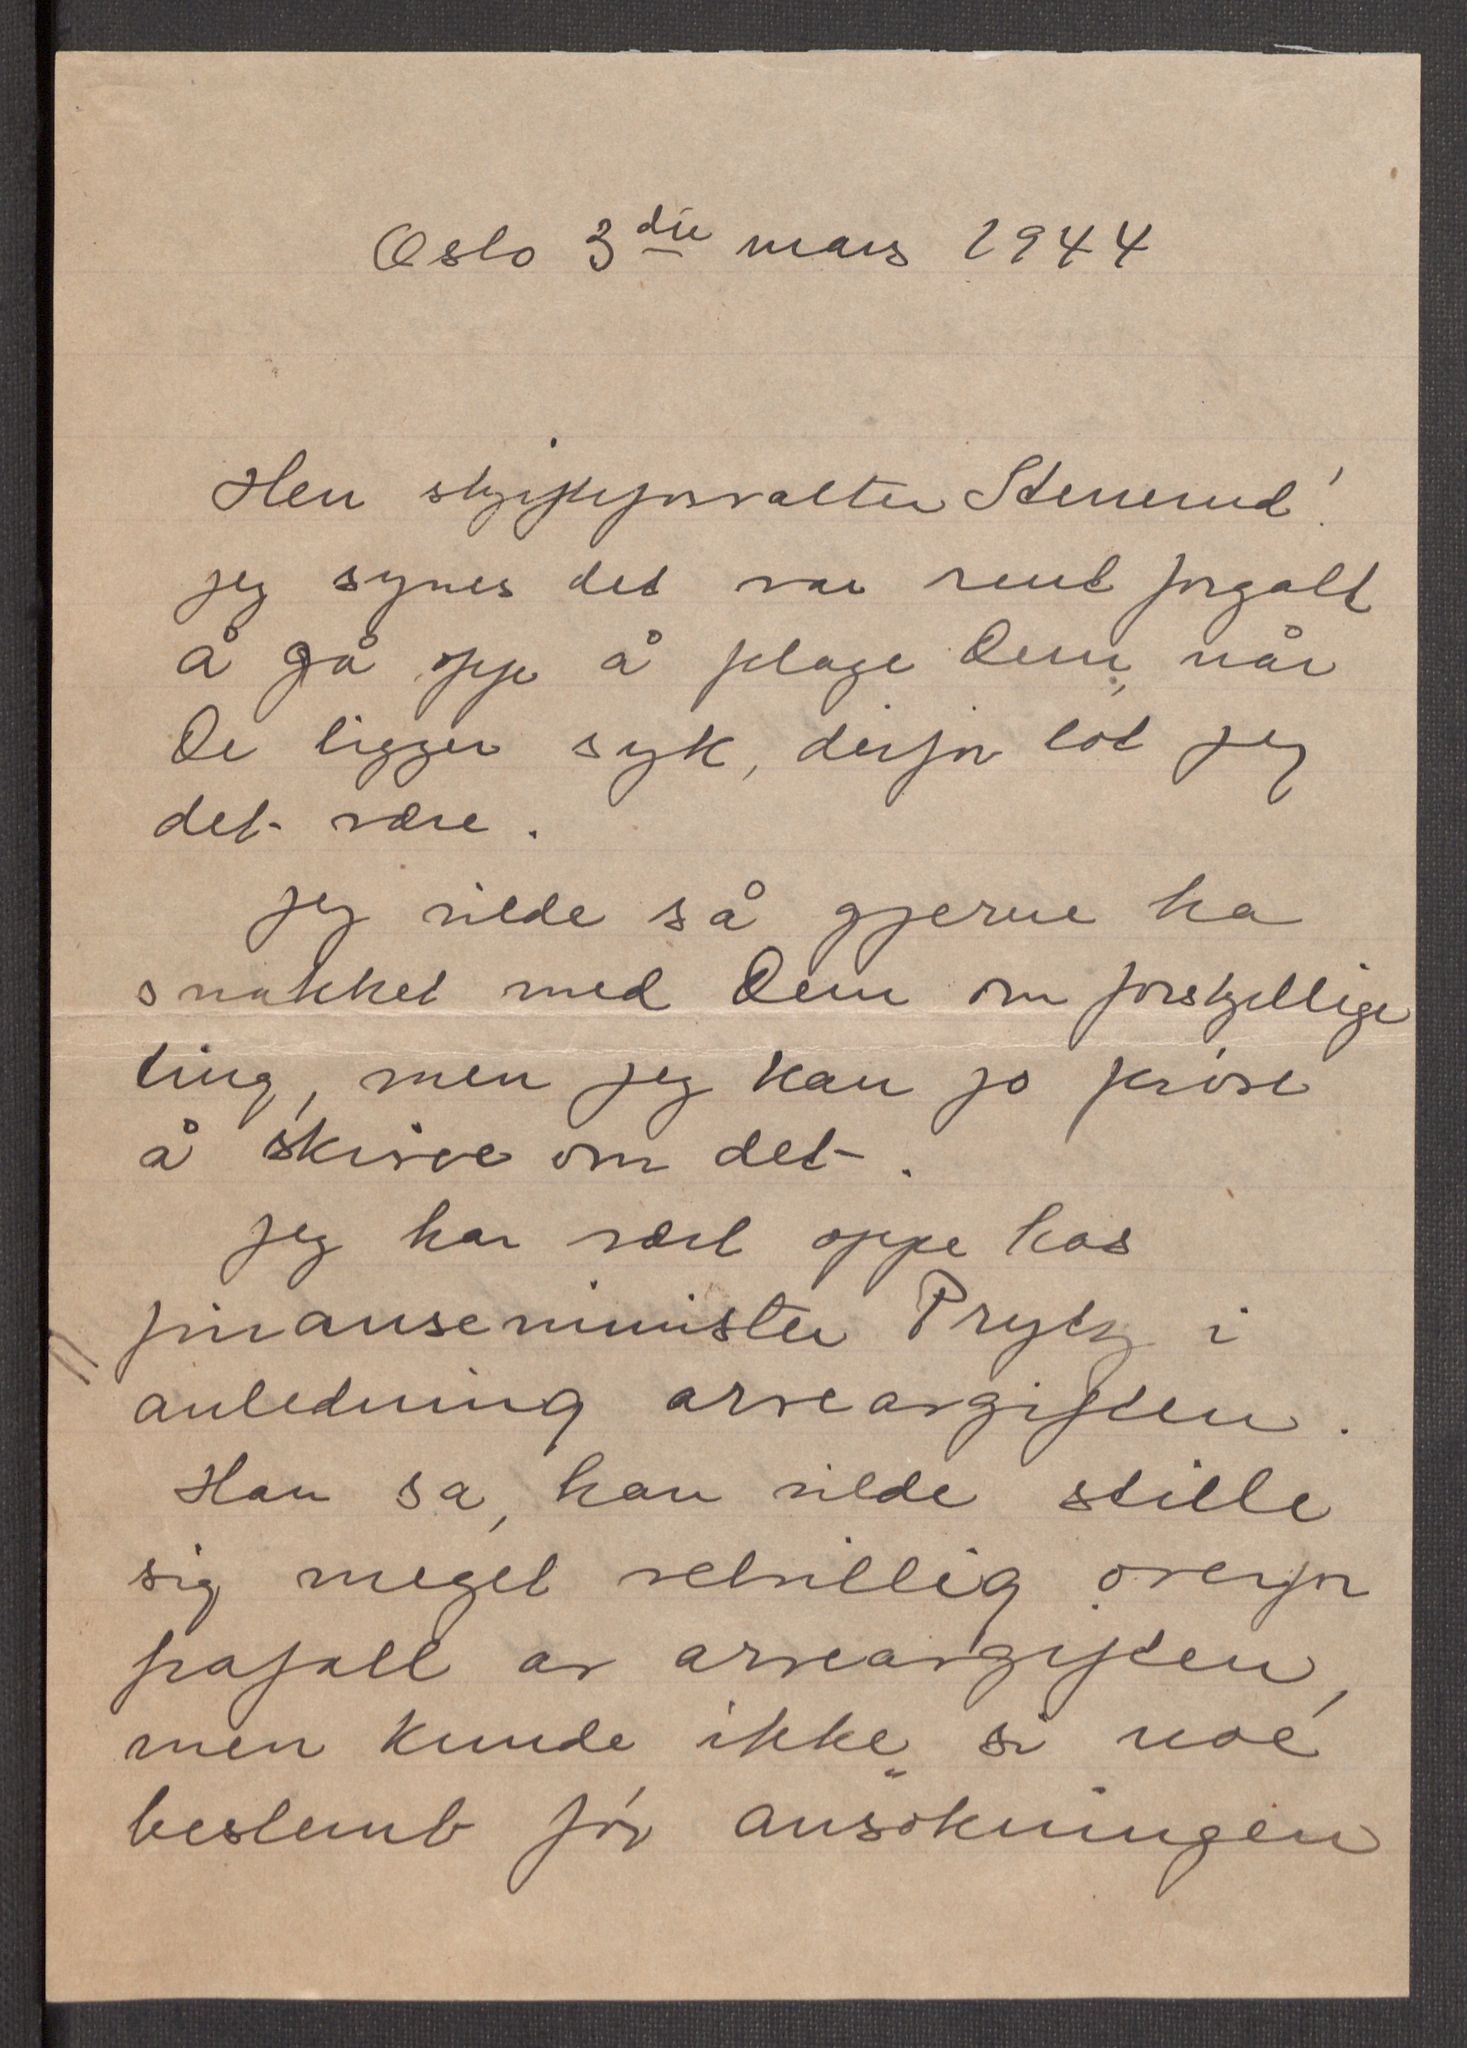 Oslo 3die mars 1944
Herr skifteforvalter Stenerud!
jeg synes det var rent forgalt
å gå opp å plage Dem, når
De ligger syk, derfor lot jeg
det være.
jeg vilde så gjerne ha
snakket med Dem om forskjellige
ting, men jeg kan jo prøve
å skrive om det.
jeg har vært oppe hos
finanseminister Prytz i
anledning arveavgiften.
Han sa, han vilde stille
sig meget velvillig overfor
frafall av arveavgiften,
men kunde ikke si noe
bestemt før ansökningen